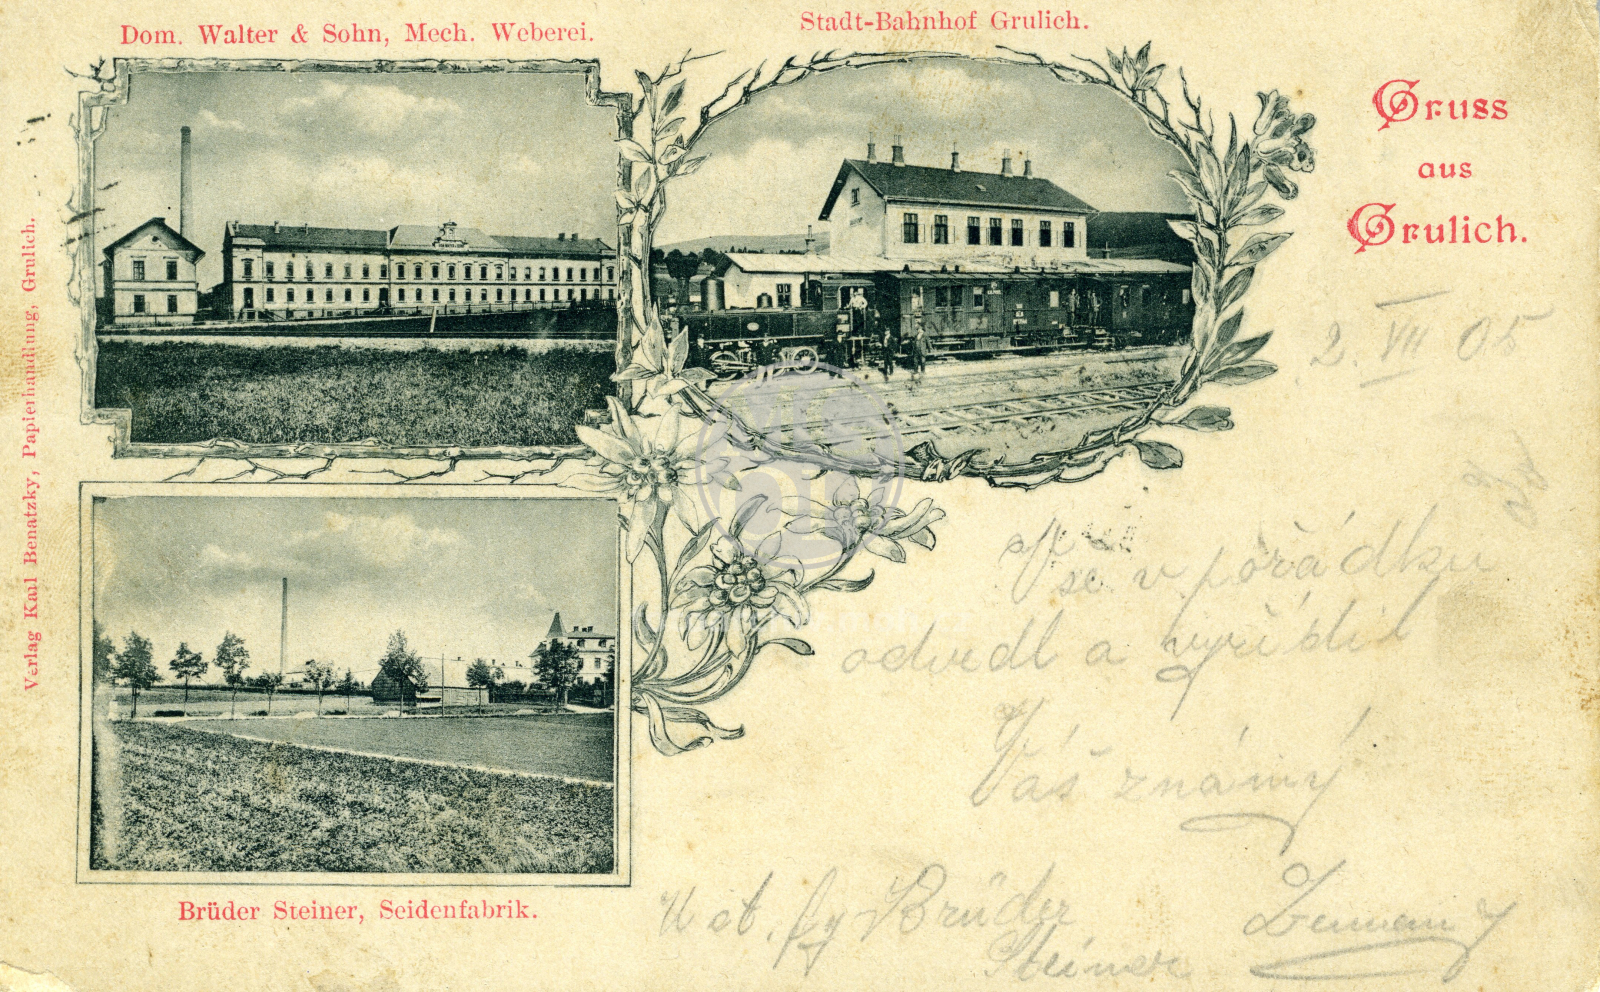 Dom. Walter & Sohn, Mech. Weberei.
Stadt-Bahnhof Grulich.
Gruss
aus
Grulich.
Verlag Karl Benatzky, Papierhandlung, Grulich.
2. VII 05
se v pořádku
odvedl a vyřídil
Váš známý
Brüder
Steiner
Brüder Steiner, Seidenfabrik.